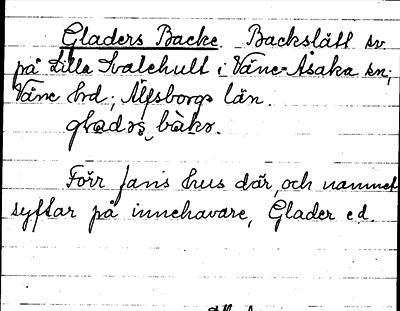 Gladers Backe. Backslätt sv.
på Lilla Svalehult i Väne-Åsaka sn;
Väne hrd; Älfsborgs län.
Förr fans hus där, och namnet
syftar på innehavare, Glader e d.